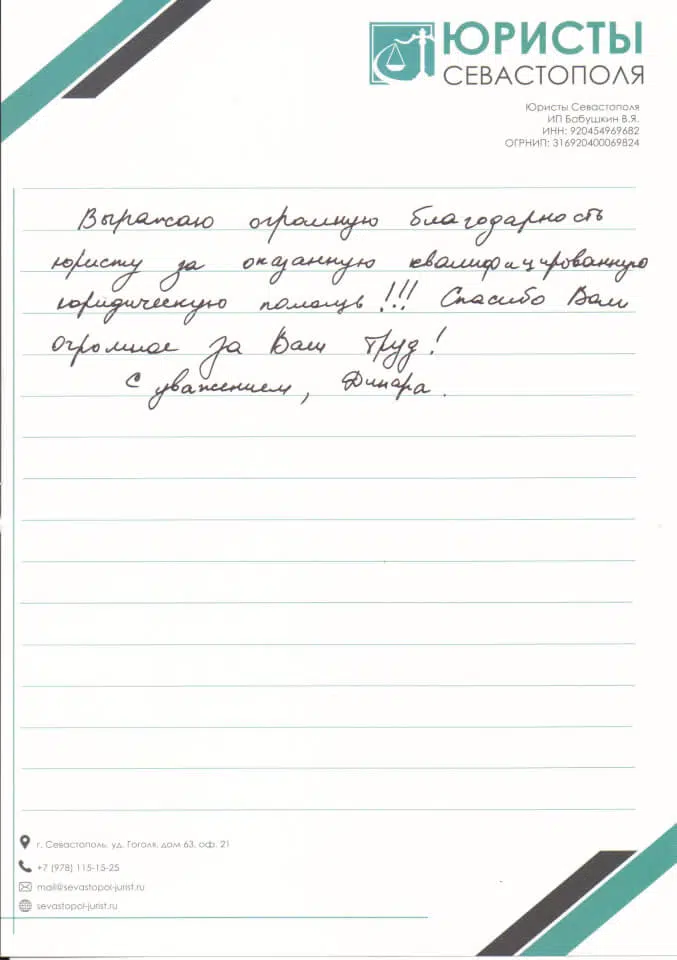 ЮРИСТЫ
СЕВАСТОПОЛЯ
Юристы Севастополя
ИП Бабушкин В.Я.
ИНН: 920454969682
ОГРНИП: 316920400069824
Выражаю огромную благодарность
юристу за оказанную квалифицированную
юридическую помощь!!! Спасибо Вам
огромное за Ваш труд!
С уважением, Динара.
г. Севастополь, уд. Гоголя, дом 63, оф. 21
+7 (978) 115-15-25
mail@sevastopol-jurist.ru
sevastopol-jurist.ru